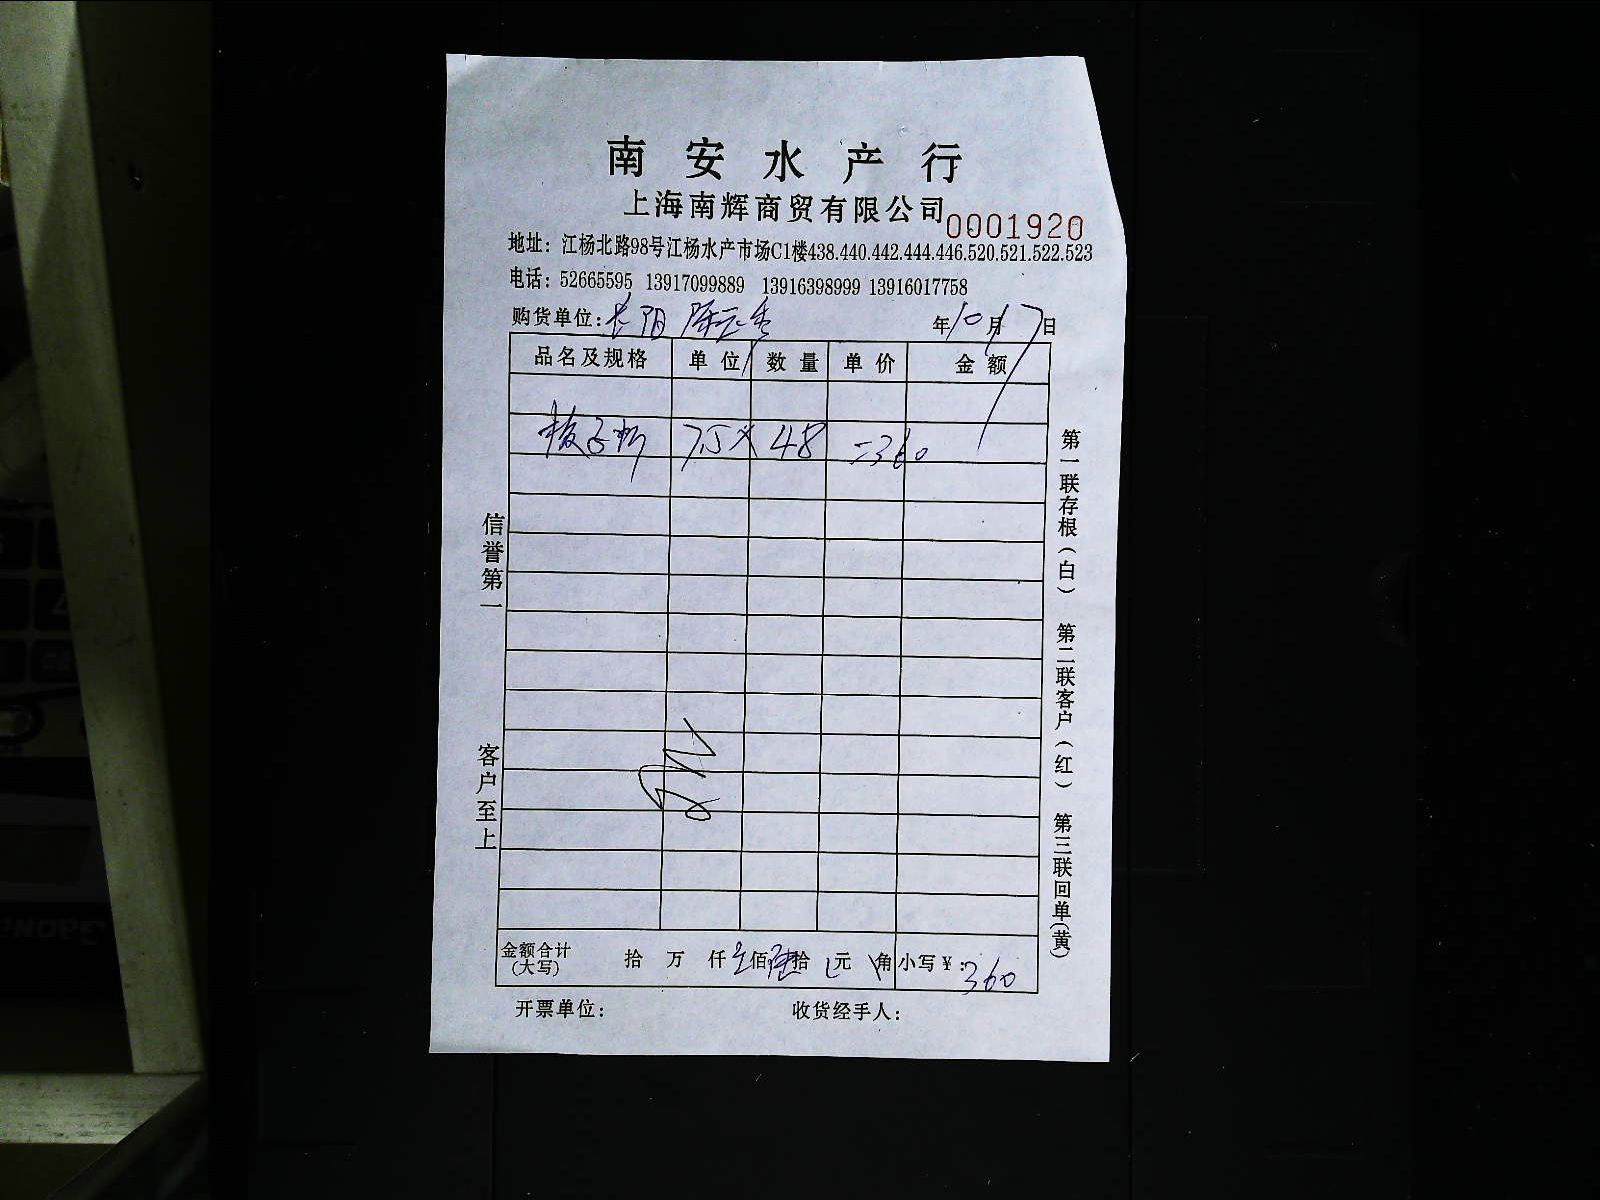 南安水产行
上海南辉商贸有限公司 0001920
地址：江杨北路98号江杨水产市场C1楼438.440.442.444.446.520.521.522.523
电话：52665595 13917099889 13916398999 13916017758
购货单位：长阳 年10月17日
品名及规格 单位 数量 单价 金额
7.5× 48 =360
信誉第一
客户至上
第一联存根(白) 第二联客户(红) 第三联回单(黄)
金额合计 拾 万 仟 佰 陆拾 元 角 小写¥：360
(大写)
开票单位： 收货经手人：